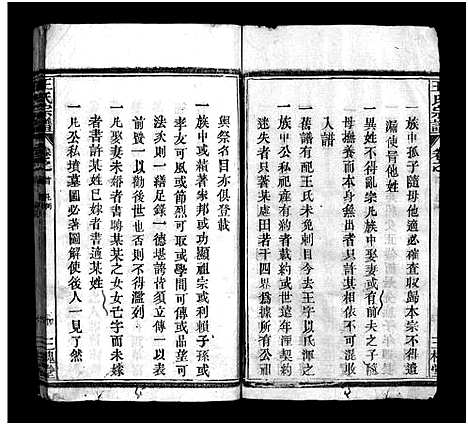 一族中孤子隨母他適必確查收歸本宗不得遺
漏使冒他姓
一異姓不得亂宗凡族中娶妻或有前夫之子隨
母撫養而本身無出者只許某收不得混
入譜
一族中公私祀產有約者載約或世遠年湮契約
迷失者只書某處田若干四界為據所有公祖
與祭名目亦俱登載
一族中或藉著家邦或功顯祖宗或利賴子孫或
孝友可風或節烈可取或學問可傳或品望可
法汞則一藉足錄一德堪誇皆須立傳一以表
前賢一以勸後世也否則不得濫列
一凡娶妻未婚者書聘某某之女女已字而未嫁
者書許某姓已嫁者書適某姓
一凡公私墳墓圖必著圖解使後人一見了然
王氏宗譜
三槐堂